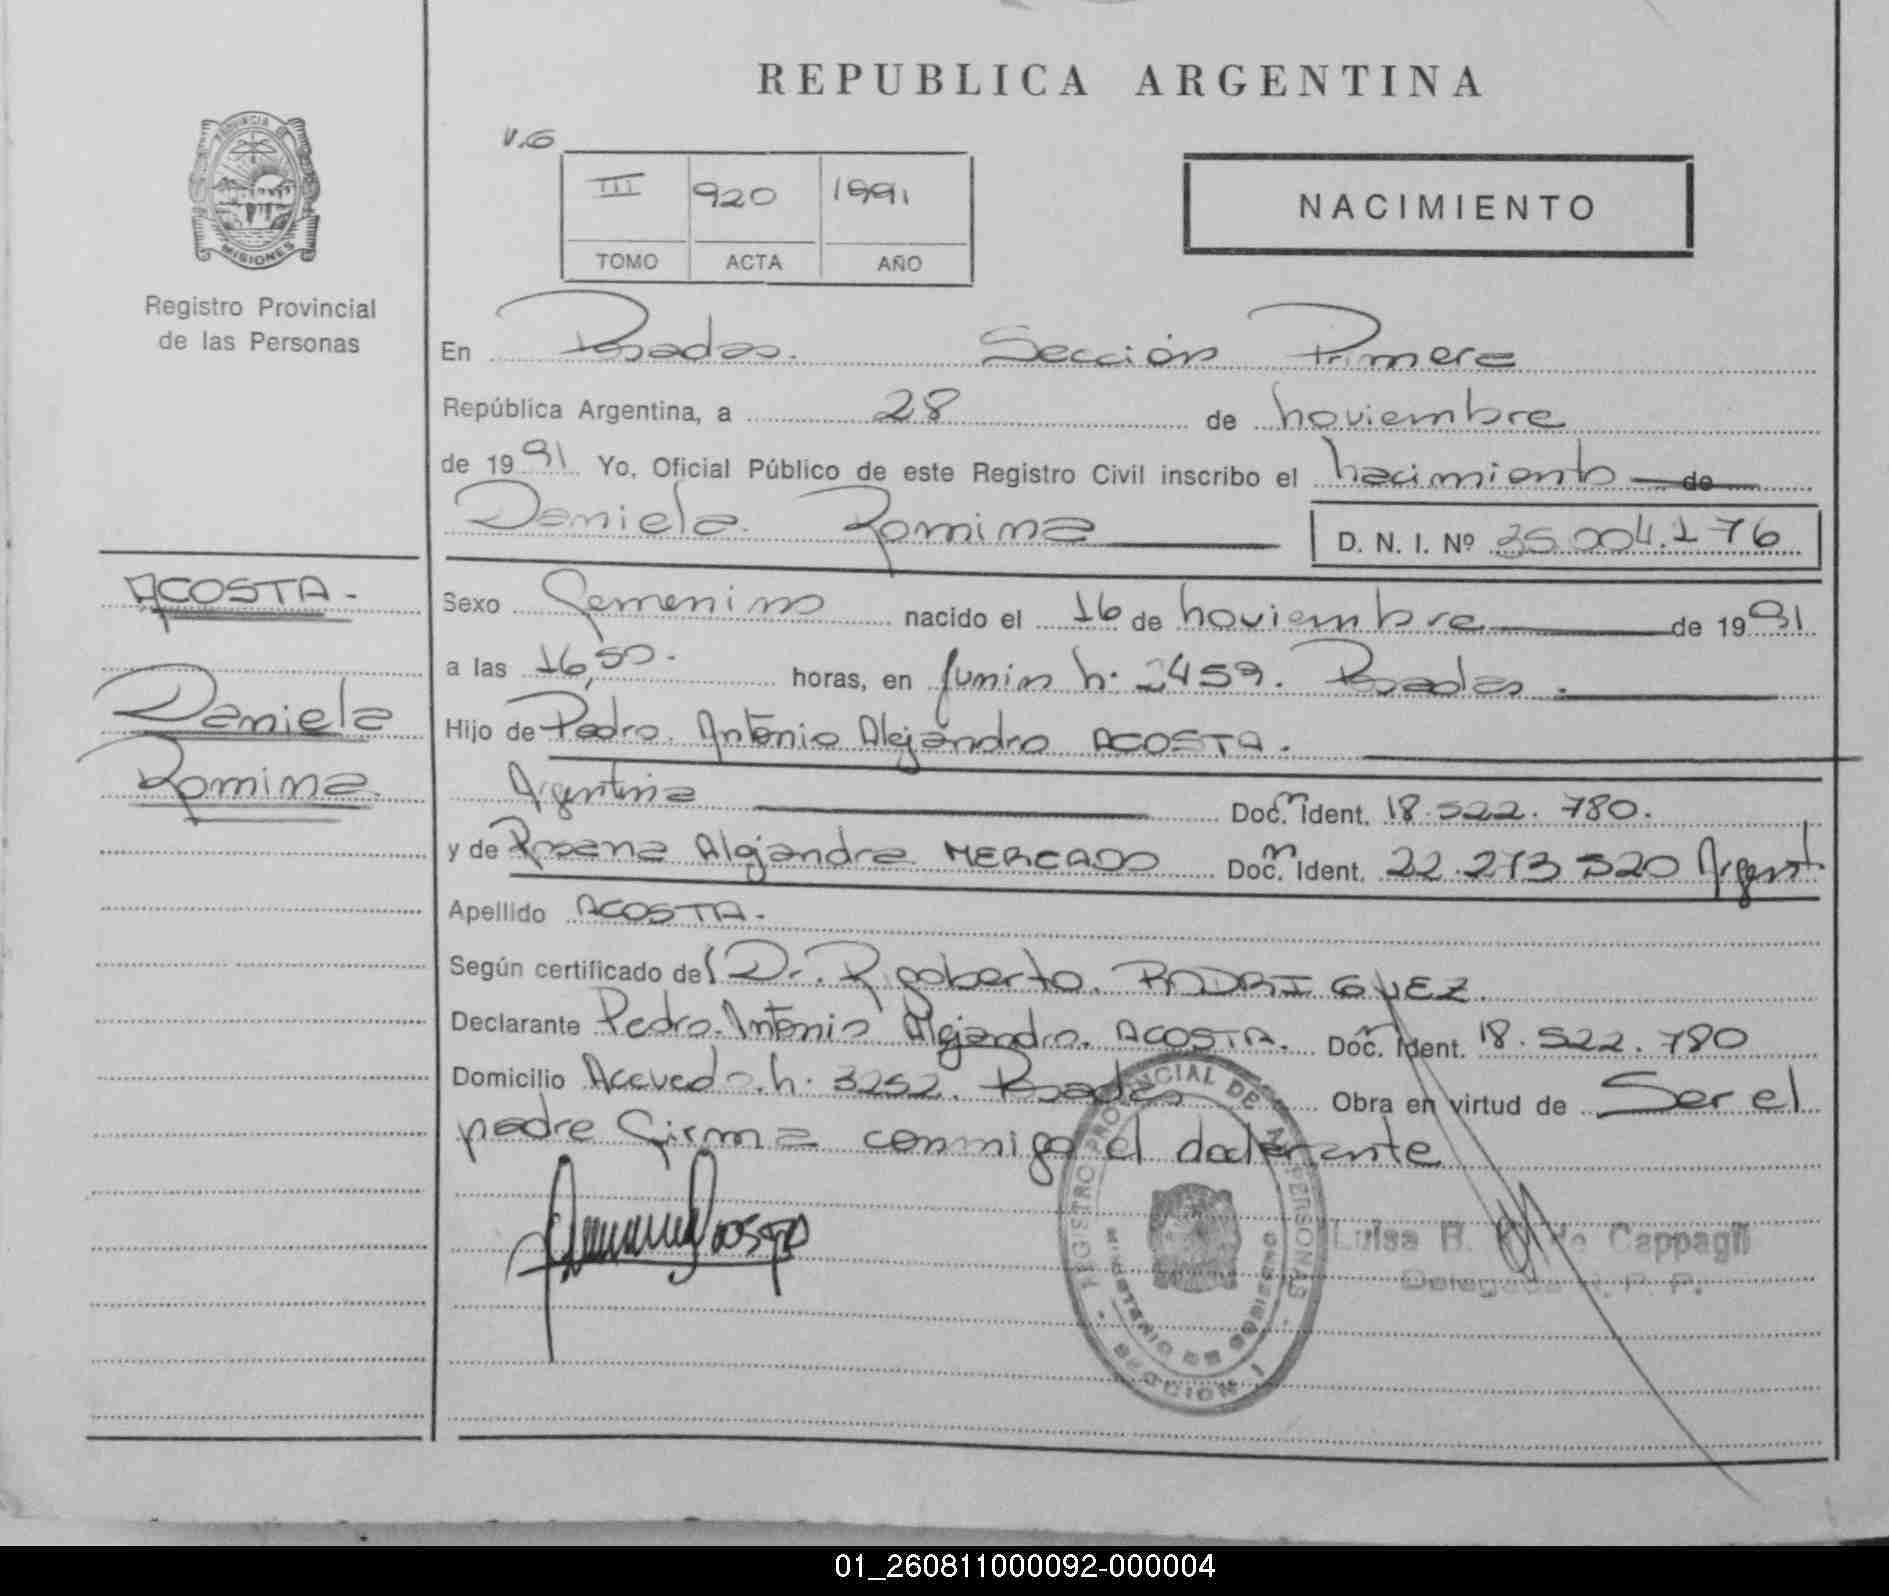 REPUBLICA ARGENTINA
V.G
III 920 1991
TOMO ACTA AÑO
NACIMIENTO
PROVINCIA DE MISIONES
Registro Provincial
de las Personas
En Posadas. Sección Primera
República Argentina, a 28 de noviembre
de 1991 Yo, Oficial Público de este Registro Civil inscribo el nacimiento de
Daniela Romina D. N. I. Nº 35.004.176
ACOSTA.-
Daniela
Romina
Sexo Femenino nacido el 16 de noviembre de 1991
a las 16,50. horas, en Junin n: 2459. Posadas.
Hijo de Pedro Antonio Alejandro ACOSTA.
Argentina Doc. Ident. 18.522.780.
y de Roxana Alejandra MERCADO Doc. Ident. 22.273.520 Argent.
Apellido ACOSTA.-
Según certificado del Dr. Rigoberto RODRIGUEZ.
Declarante Pedro Antonio Alejandro ACOSTA. Doc. Ident. 18.522.780
Domicilio Acevedo n: 3252. Posadas Obra en virtud de Ser el
padre Firma conmigo el declarante
REGISTRO PROVINCIAL DE LAS PERSONAS
MINISTERIO DE GOBIERNO
SECCION I
Luisa R. de Cappagli
Delegada R. P. P.
01_260811000092-000004